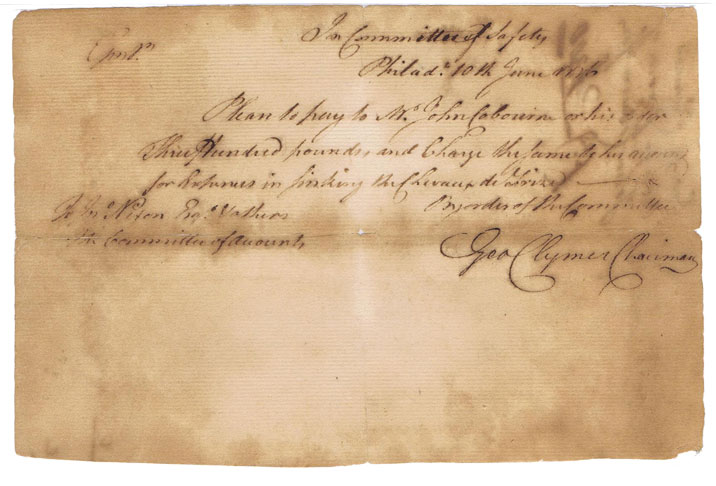 In Committee of Safety
Gent.n
Philad.a 10th June 1776
Please to pay to Mr. John Cobourn or his order
Three Hundred pounds and Charge the same to his
for Expences in sinking the Chevaux de Frize
To Jn.o Nixon Esq.r & others By order of the Committee
the Committee of Accounts
Geo Clymer Chairman